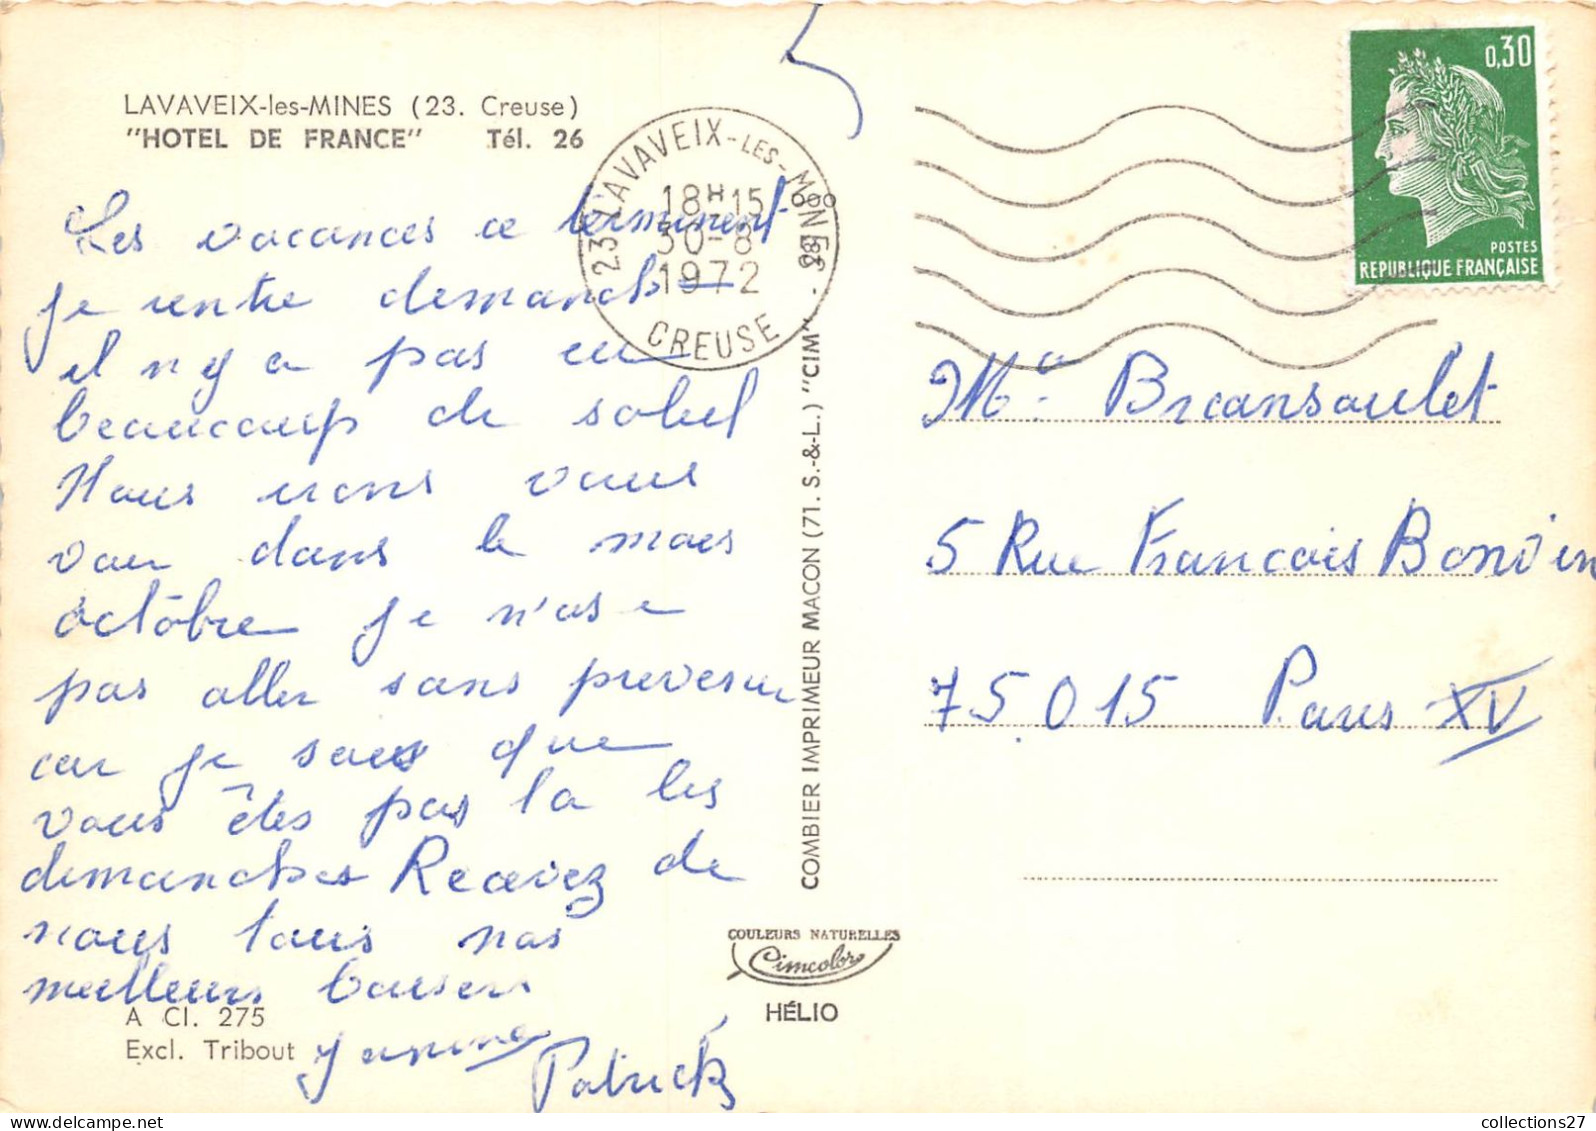 LAVAVEIX-les-MINES (23. Creuse)
"HOTEL DE FRANCE" Tél. 26
Les vacances ce terminent
je rentre demanche
il n y a pas eu
beaucoup de soleil
Nous irons vous
voir dans le mois
octobre je n'ose
pas aller sans prevenir
car je sais que
vous êtes pas la les
demanches Recevez de
nous tous nos
meilleurs baisers
Janine
Patrick
A Cl. 275
Excl. Tribout
23 LAVAVEIX-LES-MINES
18H15
30-8
1972
CREUSE
COMBIER IMPRIMEUR MACON (71. S.-&-L.) "CIM"
COULEURS NATURELLES
Cimcolor
HÉLIO
0,30
POSTES
REPUBLIQUE FRANÇAISE
Me Breansoulet
5 Rue Francois Bonvin
75.015 Paris XV
collections27